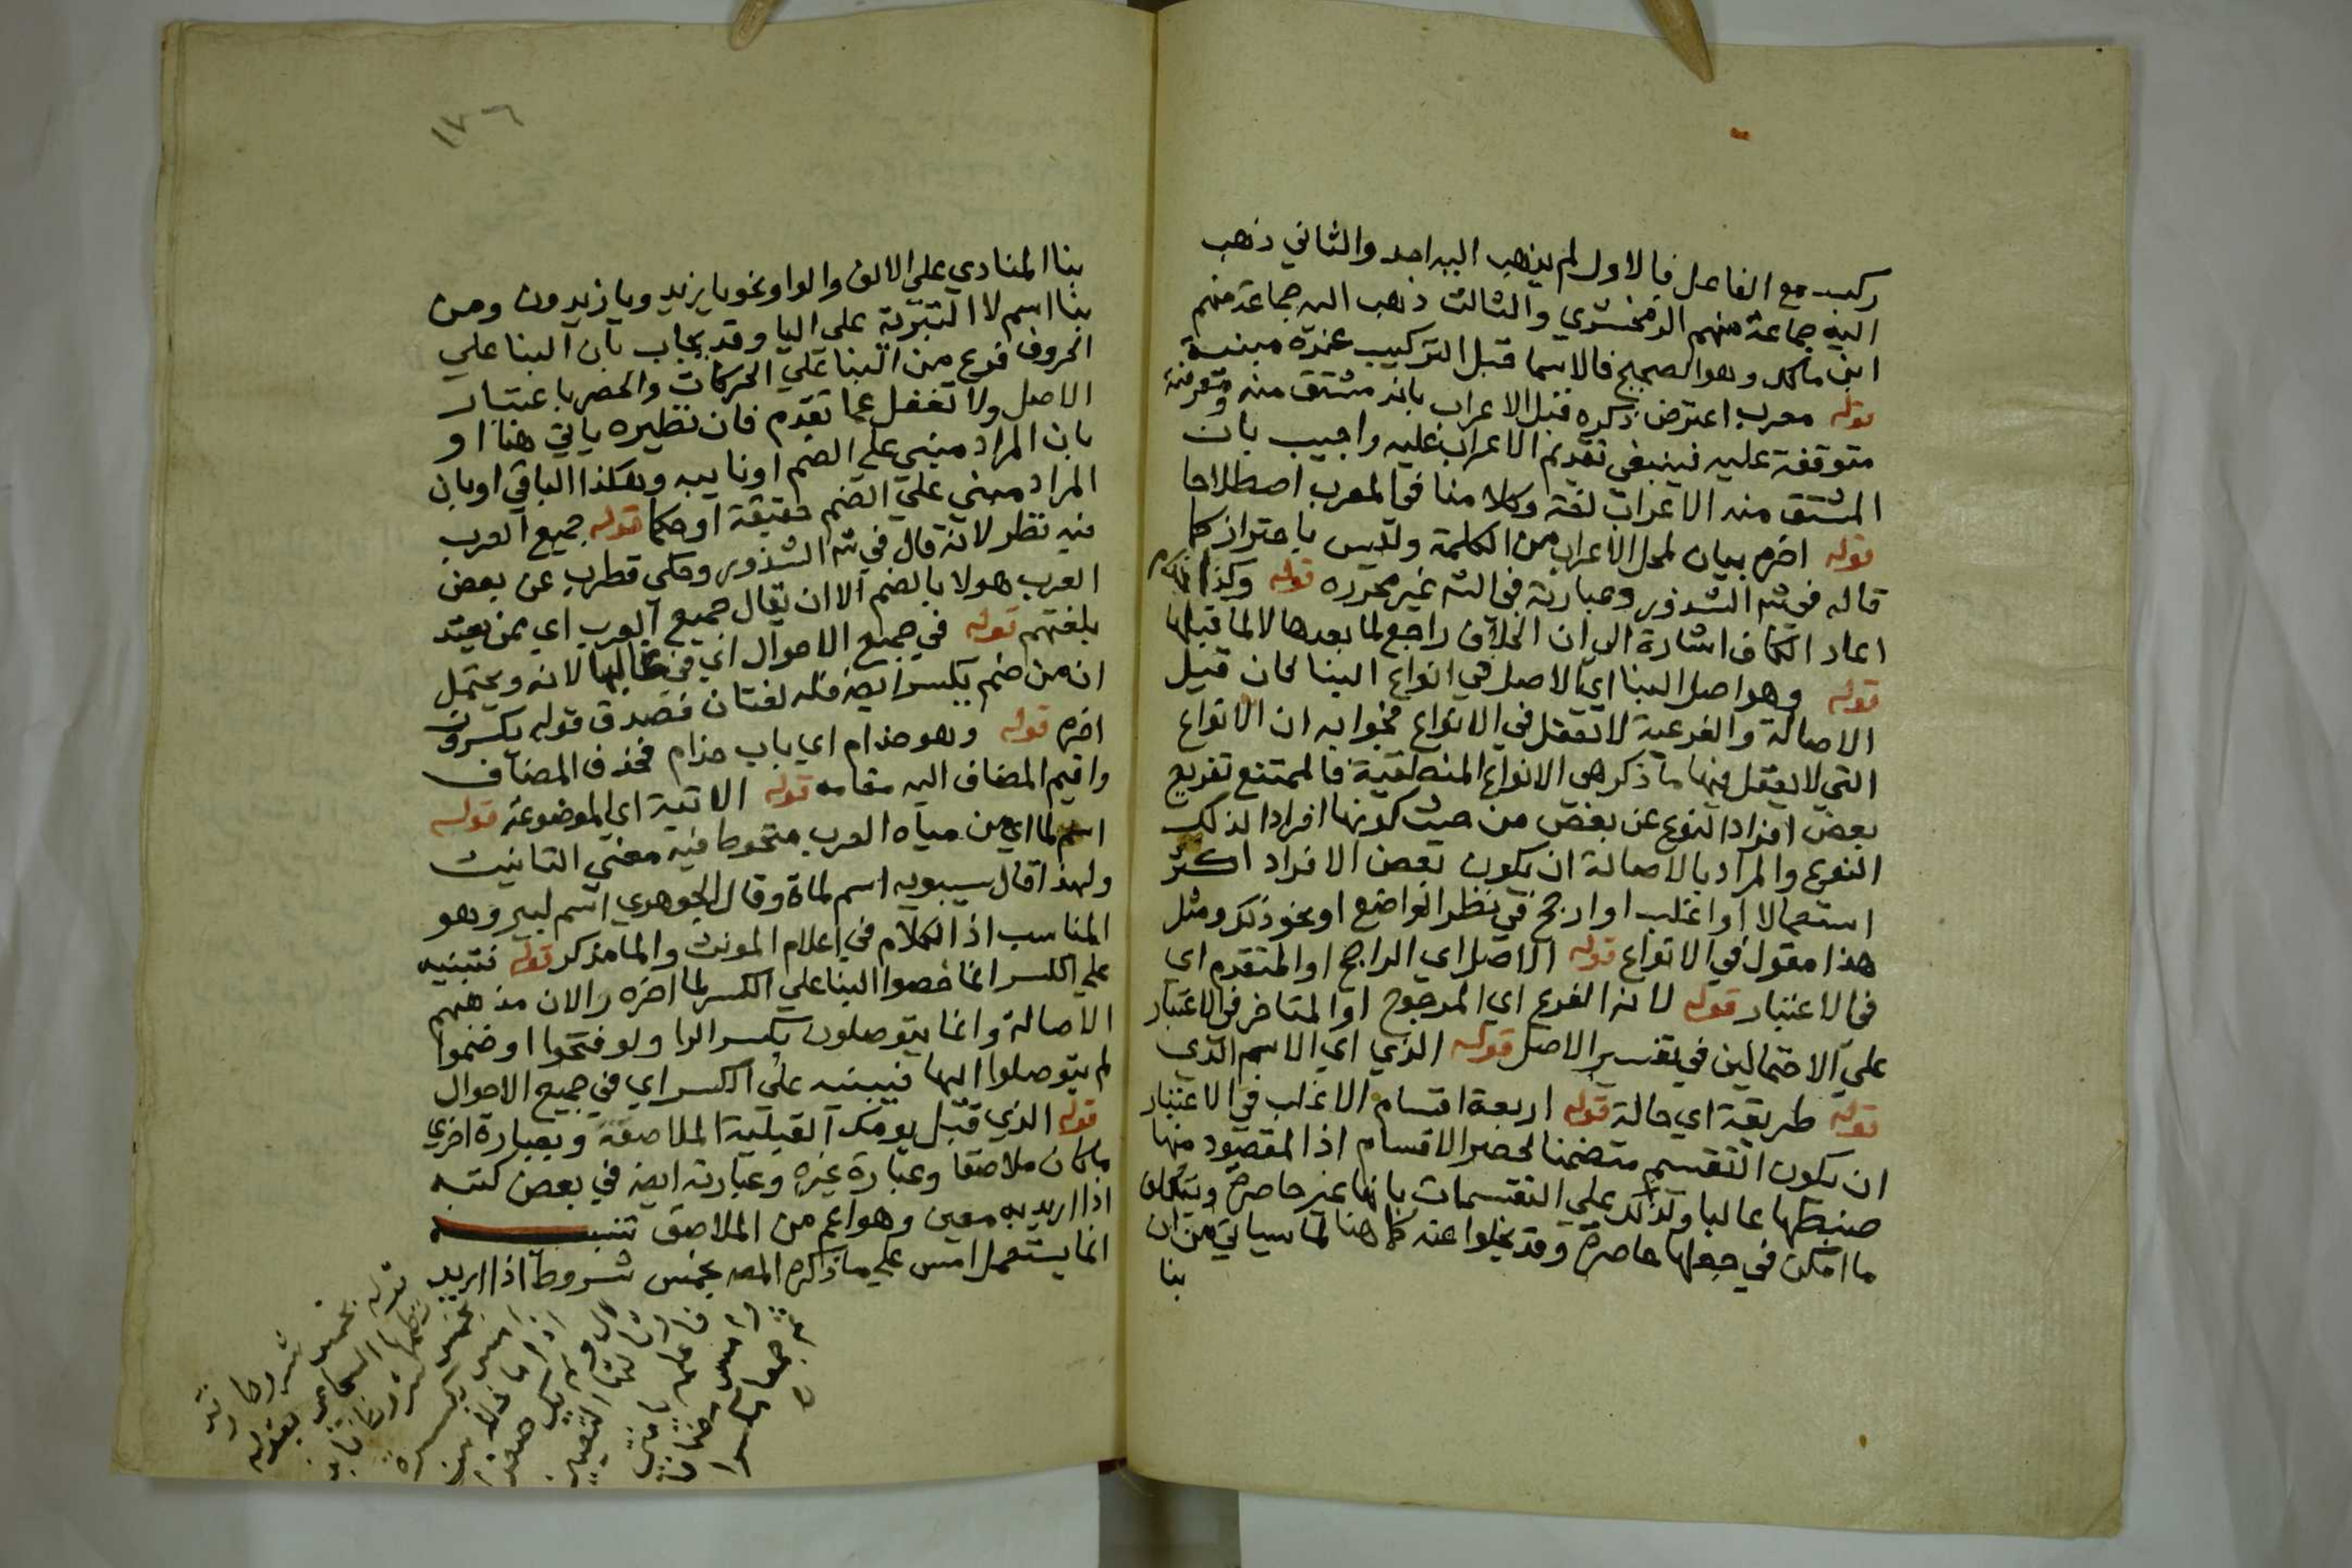 ركب مع الفاعل فالاول لم يذهب اليه احد والثاني ذهب
اليه جماعة منهم الزمخشري والثالث ذهب اليه جماعة منهم
ابن مالك وهو الصحيح فالاسما قبل التركيب عنده مبنية
قوله معرب اعترض ذكره قبل الاعراب بانه مشتق منه ومعرفته
متوقفة عليه فينبغي تقديم الاعراب عليه واجيب بان
المشتق منه الاعراب لغة وكلامنا في المعرب اصطلاحا
قوله اخره بيان لمحل الاعراب من الكلمة وليس باحتراز كما
قاله في شه الشذور وعبارته في الشه غير محرره قوله وكذا
اعاد الكاف اشارة الى ان الخلاف راجع لما بعدها لا لما قبلها
قوله وهو اصل البنا اي الاصل في انواع البنا لان قيل
الاصالة والفرعية لا تعقل في الانواع فجوابه ان الانواع
التي لا يعقل فيها ما ذكر هي الانواع المنطقية فالممتنع تفريع
بعض افراد النوع عن بعض من حيث كونها افرادا لذلك
النوع والمراد بالاصالة ان يكون بعض الافراد اكثر
استعمالا او اغلب او ارجح في نظر الواضع او نحو ذلك ومثل
هذا مقول في الانواع قوله الاصل اي الراجح او المتقدم اي
في الاعتبار قوله لانه الفرع اي المرجوح او المتاخر في الاعتبار
على الاحتمالين في تفسير الاصل قوله الذي اي الاسم الذي
قوله طريقة اي حالة قوله اربعة اقسام الاغلب في الاعتبار
ان يكون التقسيم متضمنا لحصر الاقسام اذ المقصود منها
ضبطها غالبا ولذلك على التقسيمات بانها غير حاصرة ويتكلف
ما امكن في جعلها حاصرة وقد يخلوا عنه كما هنا لما سياتي من ان
بنا
١٧٦
بنا المنادي على الالف والواو نحو يا زيد ويا زيدون ومن
بنا اسم لا التبرئة على اليا وقد يجاب بان البنا على
الحروف فرع من البنا على الحركات والحصر باعتبار
الاصل ولا تغفل عما تقدم فان نظيره ياتي هنا او
بان المراد مبني على الضم او نايبه وهكذا الباقي او بان
المراد مبني على الضم حقيقة او حكما قوله جميع العرب
فيه نظر لانه قال في شه الشذور وحكى قطرب عن بعض
العرب هولا بالضم الا ان يقال جميع العرب اي ممن يعتد
بلغتهم قوله في جميع الاحوال اي في غالبها لانه ويحتمل
ان من ضم يكسر ايضا فله لغتان فصدق قوله يكسرون
اخره قوله وهو حذام اي باب حذام فحذف المضاف
واقيم المضاف اليه مقامه قوله الاتية اي الموضوعة قوله
اسم لما اي من مياه العرب ملحوظا فيه معنى التانيث
ولهذا قال سيبويه اسم لماة وقال الجوهري اسم لبير وهو
المناسب اذ الكلام في اعلام المونث والما مذكر قوله فتبنيه
على الكسر انما خصوا البنا على الكسر لما اخره را لان مذهبهم
الامالة وانما يتوصلون بكسر الرا ولو فتحوا او ضموا
لم يتوصلوا اليها فيبنيه على الكسر اي في جميع الاحوال
قوله الذي قبل يومك القبلية الملاصقة وبعبارة اخرى
ما كان ملاصقا وعبارة غيره وعبارته ايضا في بعض كتبه
اذا اريد به معين وهو اعم من الملاصق تنبيه
انما يستعمل امس على ما ذكره المصـ بخمس شروط اذا اريد
قوله بخمس شروط